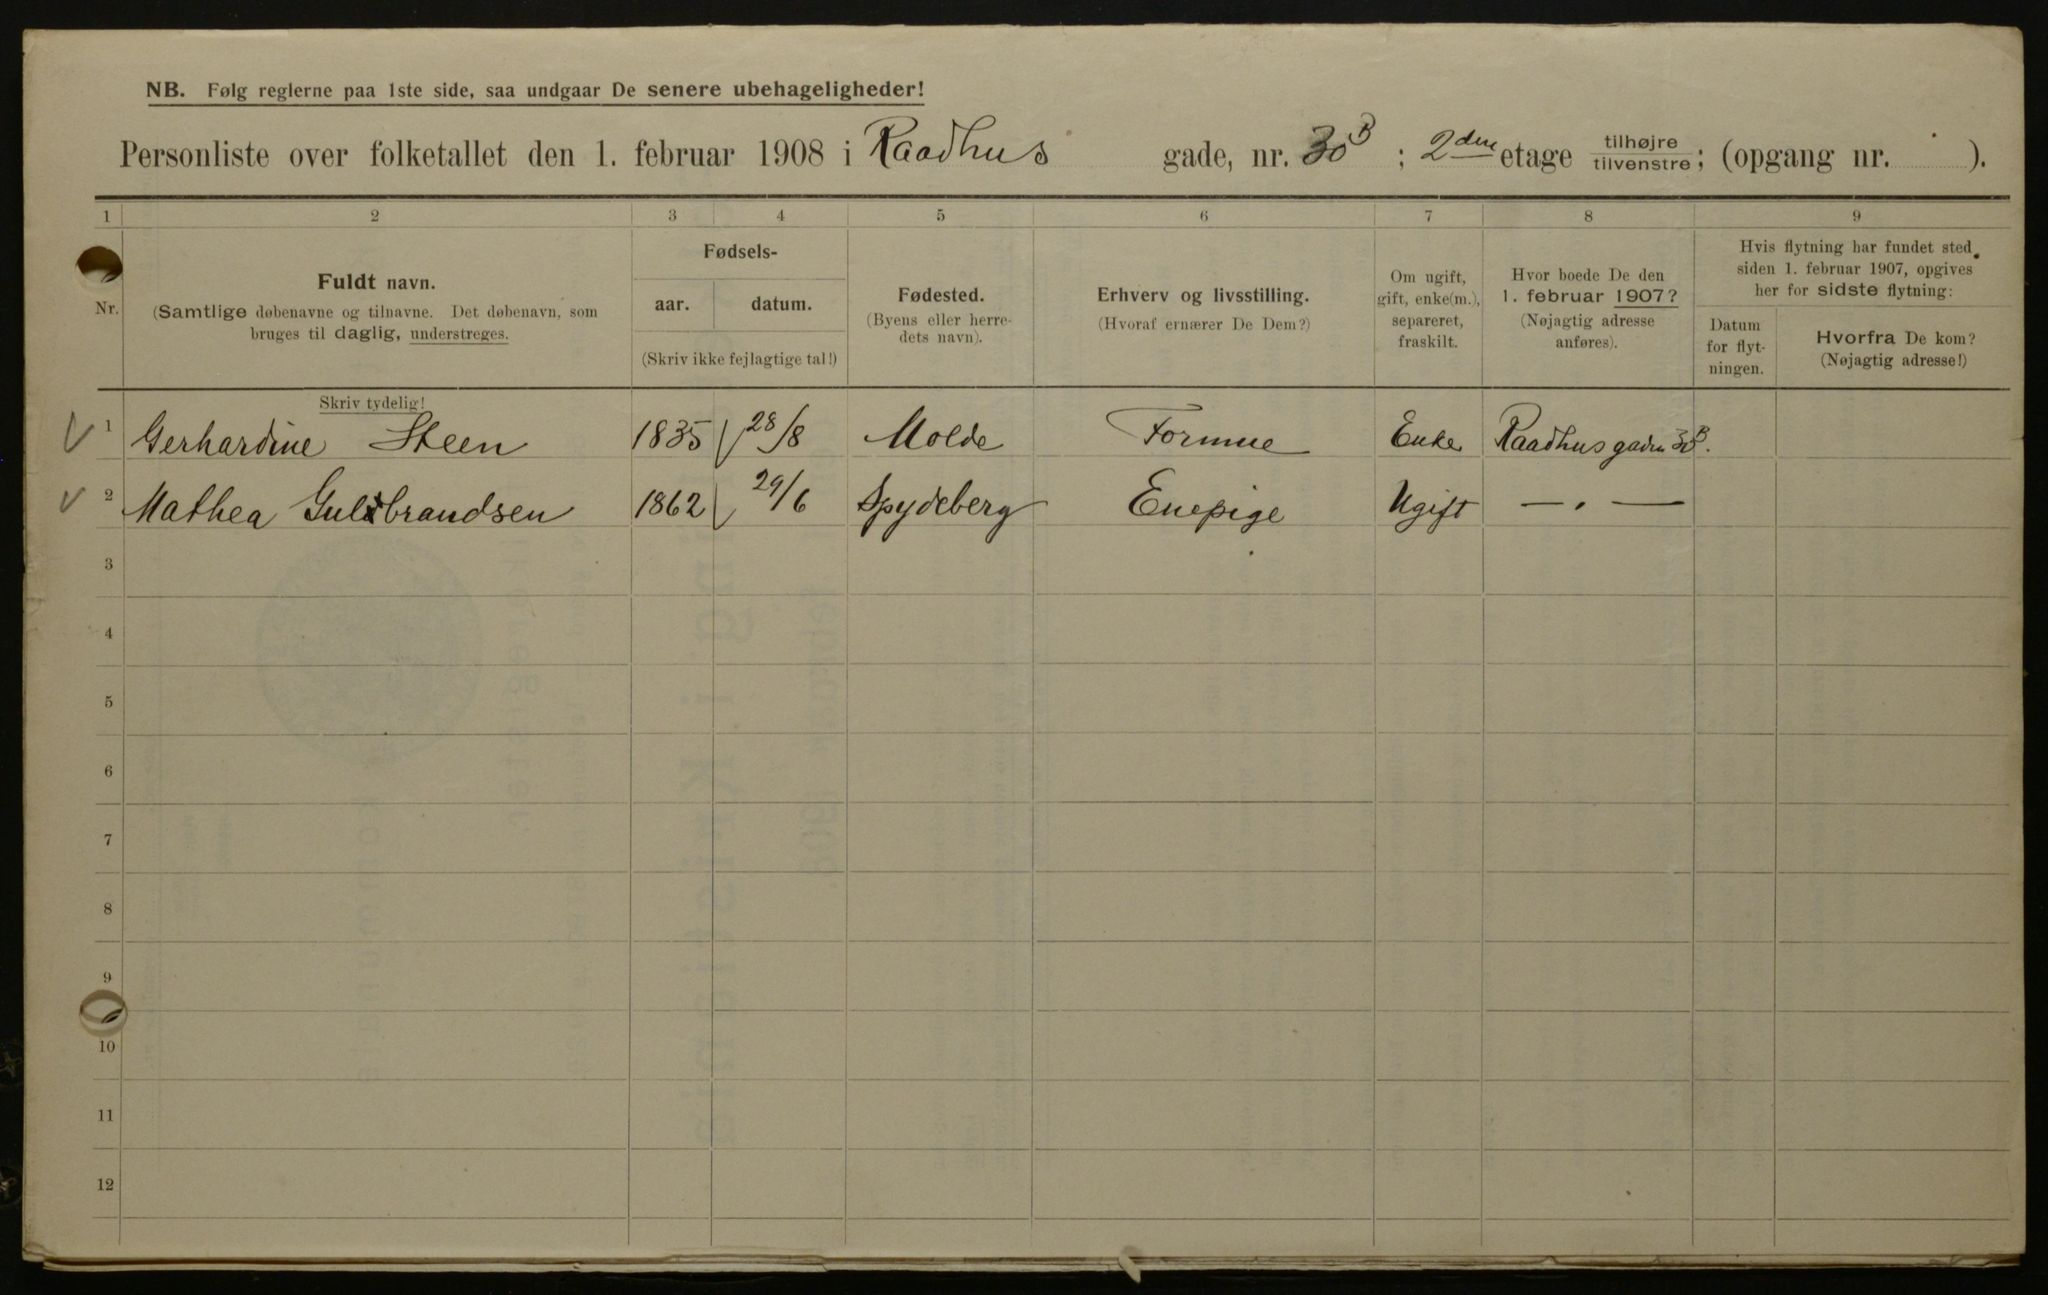 NB. Følg reglerne paa 1ste side, saa undgaar De senere ubehageligheder!
Personliste over folketallet den 1. februar 1908 i Raadhus gade, nr. 30B ; 2den etage tilhøjre tilvenstre; (opgang nr. ).
1 2 3 4 5 6 7 8 9
Nr.
Fuldt navn.
(Samtlige døbenavne og tilnavne. Det døbenavn, som
bruges til daglig, understreges.
Fødsels-
aar. datum.
(Skriv ikke fejlagtige tal!)
Fødested.
(Byens eller herre-
dets navn).
Erhverv og livsstilling.
(Hvoraf ernærer De Dem?)
Om ugift,
gift, enke(m.),
separeret,
fraskilt.
Hvor boede De den
1. februar 1907?
(Nøjagtig adresse
anføres).
Hvis flytning har fundet sted
siden 1. februar 1907, opgives
her for sidste flytning:
Datum
for flyt-
ningen.
Hvorfra De kom?
(Nøjagtig adresse!)
Skriv tydelig!
1 Gerhardine Steen 1835 28/8 Molde Formue Enke Raadhusgaden 30B.
2 Mathea Gulbrandsen 1862 29/6 Spydeberg Enepige Ugift — . —
3
4
5
6
7
8
9
10
11
12